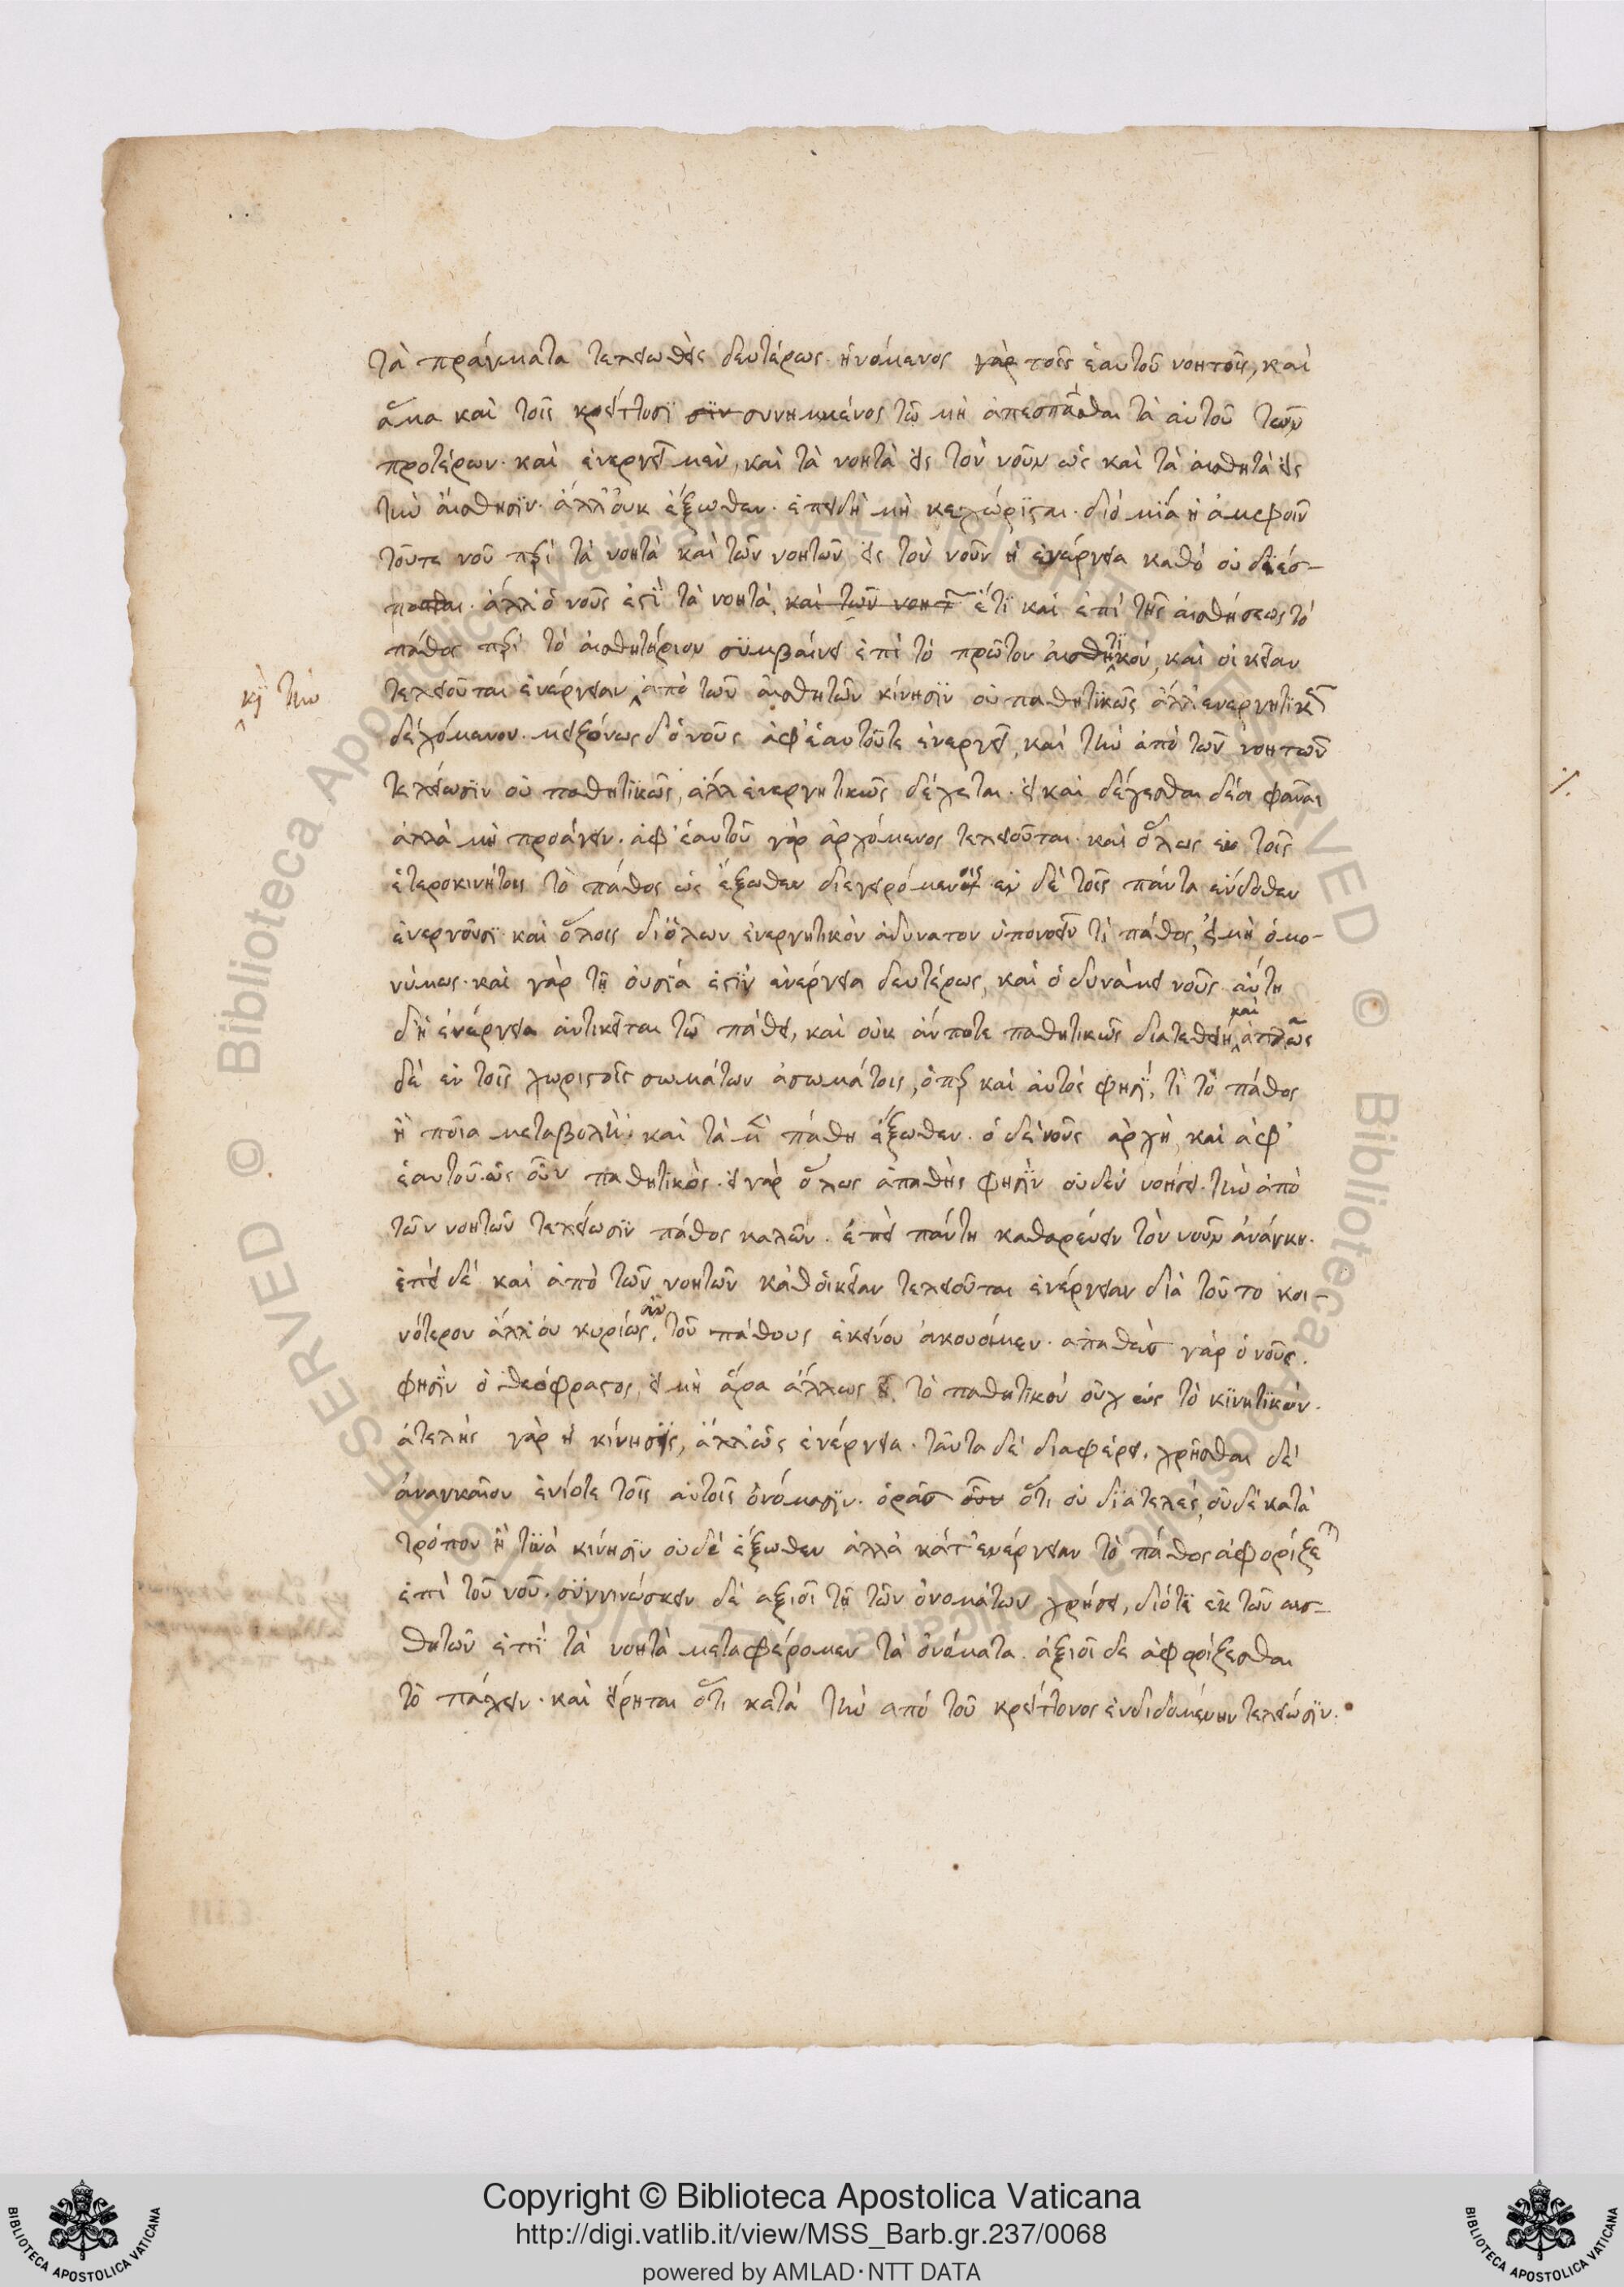 τὰ πράγματα τελειωθεὶς δευτέρως. ἡνόμενος γὰρ τοῖς ἑαυτοῦ νοητοῖς, καὶ
ἅμα καὶ τοῖς κρείττοσϊ συνημμένος τῶ μὴ ἀπεσπᾶσθαι τὰ αὐτοῦ τῶν
προτέρων. καὶ ἐνεργεῖ μὲν, καὶ τὰ νοητὰ εἰς τὸν νοῦν ὡς καὶ τὰ αἰσθητὰ εἰς
τὴν αἴσθησϊν. ἀλλ' οὐκ ἔξωθεν. ἐπειδὴ μὴ κεχώρϊσται. διό μϊά ἡ ἀμφοῖν
τοῦτε νοῦ περὶ τὰ νοητὰ καὶ τῶν νοητῶν εἰς τὸν νοῦν ἡ ἐνέργεια καθό οὐ διέσ-
πασται. ἀλλ' ὁ νοῦς ἐστὶ τὰ νοητά, καὶ τῶν νοητ ἔτϊ καὶ ἐπὶ τῆς αἰσθήσεως τὸ
πάθος περὶ τὸ αἰσθητήριον συμβαίνει ἐπὶ τὸ πρῶτον αἰσθητϊκόν, καὶ οἰκείαν
κỳ τὴν
τελειοῦται ἐνέργειαν ἀπὸ τῶν αἰσθητῶν κίνησϊν οὐ παθητϊκῶς ἀλλ' ἐνεργητϊκῶς
δεχόμενον. μειζόνως δ' ὁ νοῦς ἀφ' ἑαυτοῦτε ἐνεργεῖ, καὶ τὴν ἀπὸ τῶν νοητῶν
τελείωσϊν οὐ παθητϊκῶς, ἀλλ' ἐνεργητικῶς δέχεται. εἰ καὶ δέχεσθαι δέοι φαναι
ἀλλὰ μὴ προάγειν. ἀφ' ἑαυτοῦ γὰρ ἀρχόμενος τελειοῦται. καὶ ὅλως ἐν τοῖς
ἑτεροκινήτοις τὸ πάθος ὡς ἔξωθεν διεγειρόμενοις ἐν δὲ τοῖς πάντα ἔνδοθεν
ἐνεργοῦσϊ καὶ ὅλοις δι' ὅλων ἐνεργητικὸν ἀδυνατον ὑπονοεῖν τὶ πάθος, εἰ μὴ ὁμο-
νύμως. καὶ γὰρ τῆ οὐσϊά ἐστϊν ἐνέργεια δευτέρως, καὶ ὁ δυνάμει νοῦς αὐτη
δὴ ἐνέργεια ἀντικεῖται τῶ πάθει, καὶ οὐκ ἄν ποτε παθητικῶς διατεθείη καὶ ἁπλῶς
δὲ ἐν τοῖς χωριστοῖς σωμάτων ἀσωμάτοις, ὅπερ καὶ αὐτός φησϊ, τὶ τὸ πάθος
ἢ ποῖα μεταβολὴ; καὶ τὰ μὲν πάθη ἔξωθεν. ὁ δὲ νοῦς ἀρχὴ, καὶ ἀφ'
ἑαυτοῦ. ὡς οὖν παθητικὸς. εἰ γὰρ ὅλως ἀπαθὴς φησϊν οὐδὲν νοήσει. τὴν ἀπὸ
τῶν νοητῶν τελείωσϊν πάθος καλῶν. ἐπεὶ πάντη καθαρεύειν τὸν νοῦν ἀνάγκη.
ἐπεὶ δὲ καὶ ἀπὸ τῶν νοητῶν κάθ' οἰκείαν τελειοῦται ἐνέργειαν διὰ τοῦτο κοι-
νότερον ἀλλ' οὐ κυρίως ἂν τοῦ πάθους ἐκείνου ἀκουσόμεν. ἀπαθὴς γὰρ ὁ νοῦς.
φησϊν ὁ θεόφραστος, εἰ μὴ ἄρα ἄλλως τὸ παθητϊκὸν οὐχ ὡς τὸ κϊνητϊκὸν.
ἀτελὴς γὰρ ἡ κίνησϊς, ἀλλ' ὡς ἐνέργεια. ταῦτα δὲ διαφέρει. χρῆσθαι δὲ
ἀναγκαῖον ἐνίοτε τοῖς αὐτοῖς ὀνόμασϊν. ὁρᾶς οὖν ὅτι οὐ δϊατελές, οὐδὲ κατὰ
τρόπον ἢ τϊνὰ κίνησϊν οὐδὲ ἔξωθεν ἀλλὰ κάτ' ἐνέργειαν τὸ πάθος ἀφορίζει
ἐπὶ τοῦ νοῦ. συγγινώσκειν δὲ ἀξιοῖ τῆ τῶν ὀνομάτων χρήσει, διότϊ ἐκ τῶν αισ-
θητῶν ἐπὶ τὰ νοητὰ μεταφέρομεν τὰ ὀνόματα. ἀξιοῖ δε ἀφορίζεσθαι
τὸ πάσχειν. καὶ εἴρηται ὅτι κατὰ τὴν ἀπὸ τοῦ κρείττονος ἐνδιδομένην τελείωσϊν.
Copyright © Biblioteca Apostolica Vaticana
http://digi.vatlib.it/view/MSS_Barb.gr.237/0068
powered by AMLAD·NTT DATA